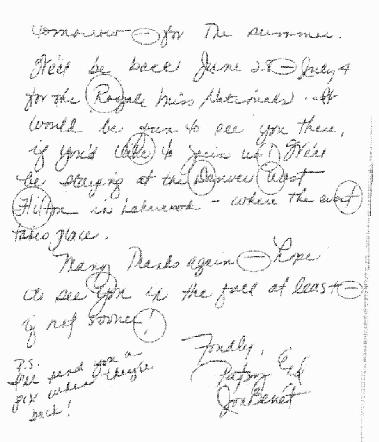 tomorrow — for the summer.
We'll be back June 28 — July 4
for the Royale Miss Nationals. It
would be fun to see you there,
if you'd like to join us! We'll
be staying at the Denver West
Hilton in Lakewood - where the event
takes place.
Many thanks again — Hope
to see you in the fall at least —
if not sooner!
Fondly,
Patsy &
JonBenét
P.S.
I'll send you a
pix when they're
back!